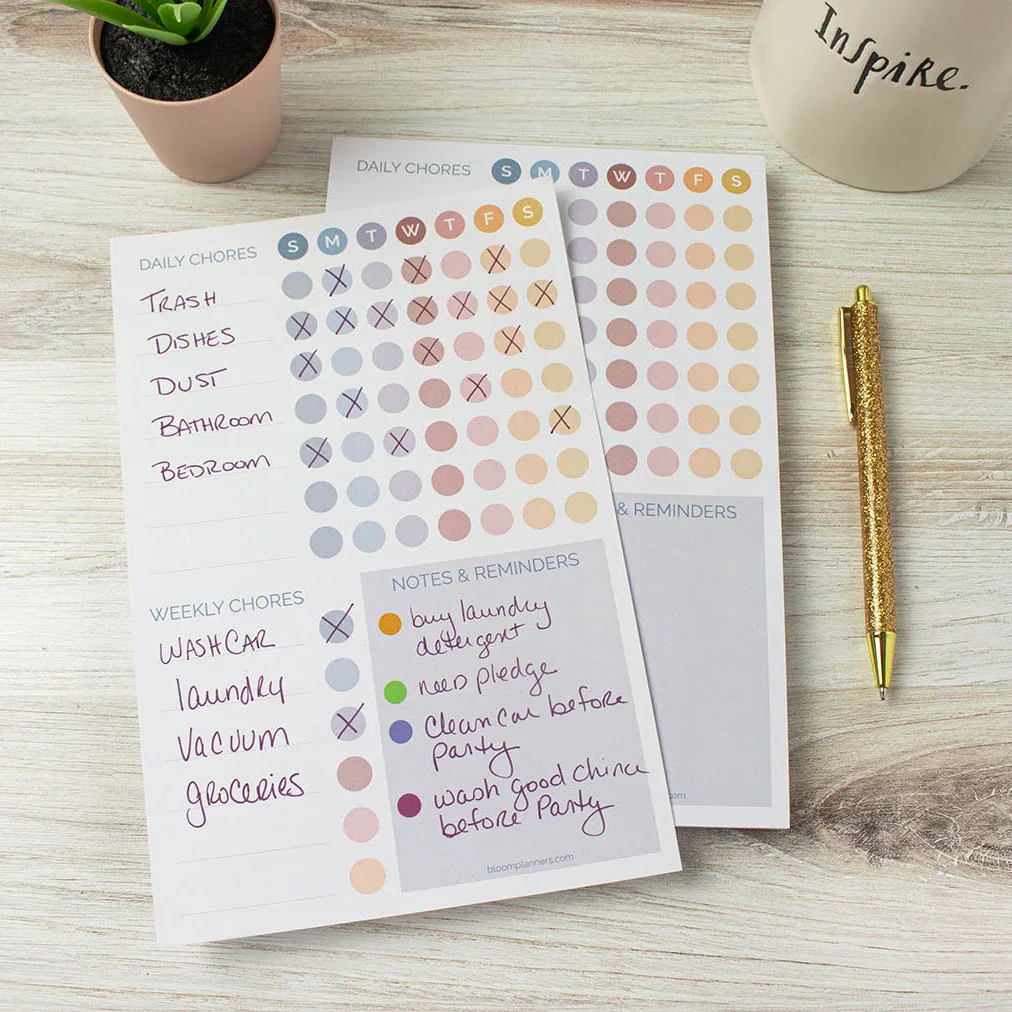 Inspire.
DAILY CHORES S M T W T F S
DAILY CHORES S M T W T F S
TRASH
DISHES
DUST
BATHROOM
BEDROOM
WEEKLY CHORES
WASH CAR
laundry
Vacuum
groceries
NOTES & REMINDERS
buy laundry
detergent
need pledge
Clean car before
party
wash good china
before Party
bloomplanners.com
& REMINDERS
om